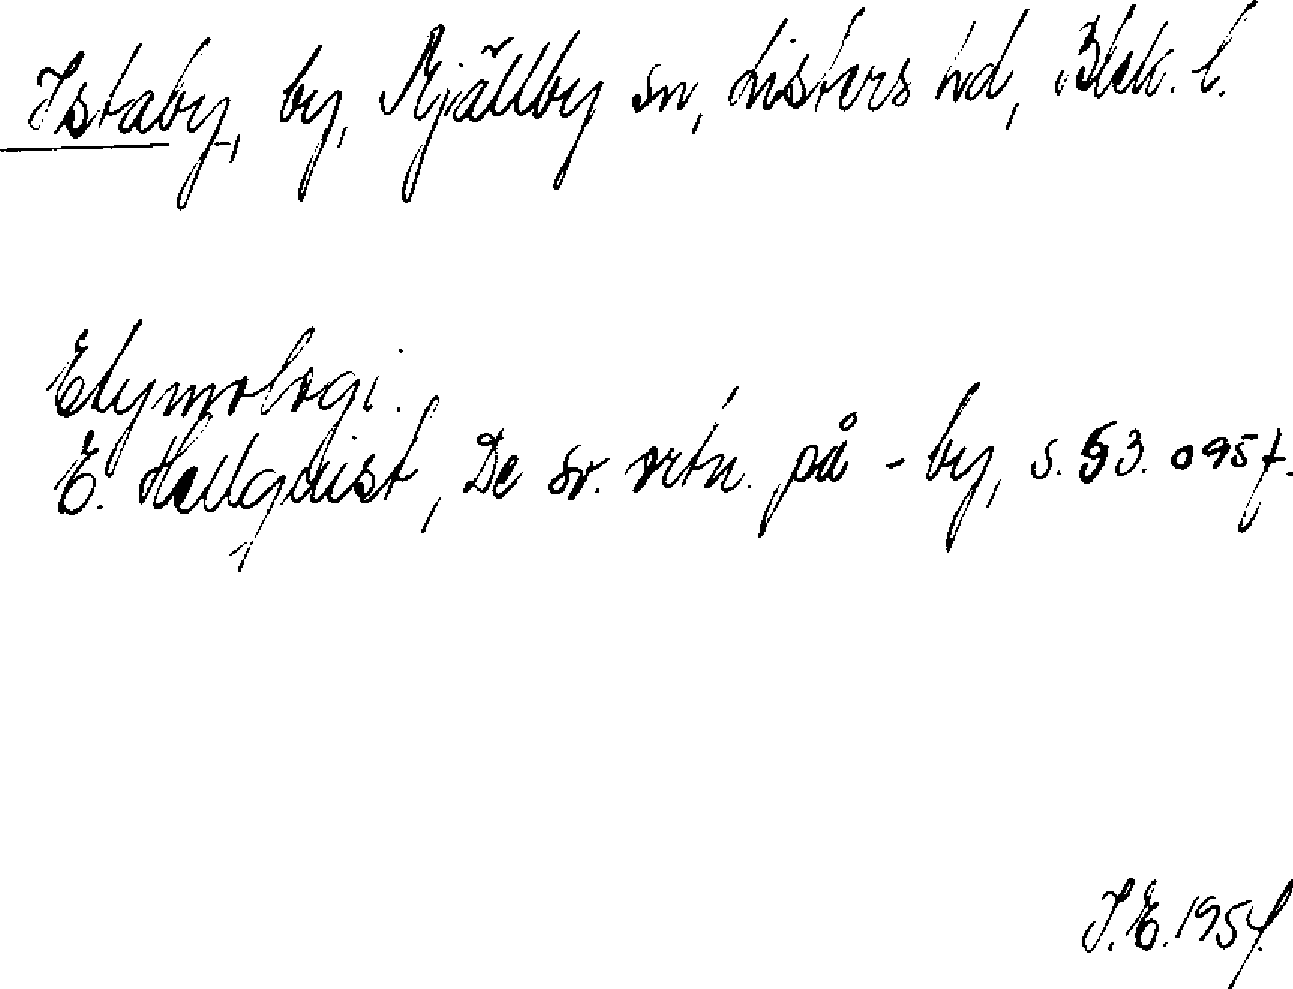 Istaby, by, Mjällby sn, Listers hd, Blek. l.
Etymologi.
E. Hellquist, De sv. ortn. på -by, s. 53. o 95 f.
J.E. 1954.